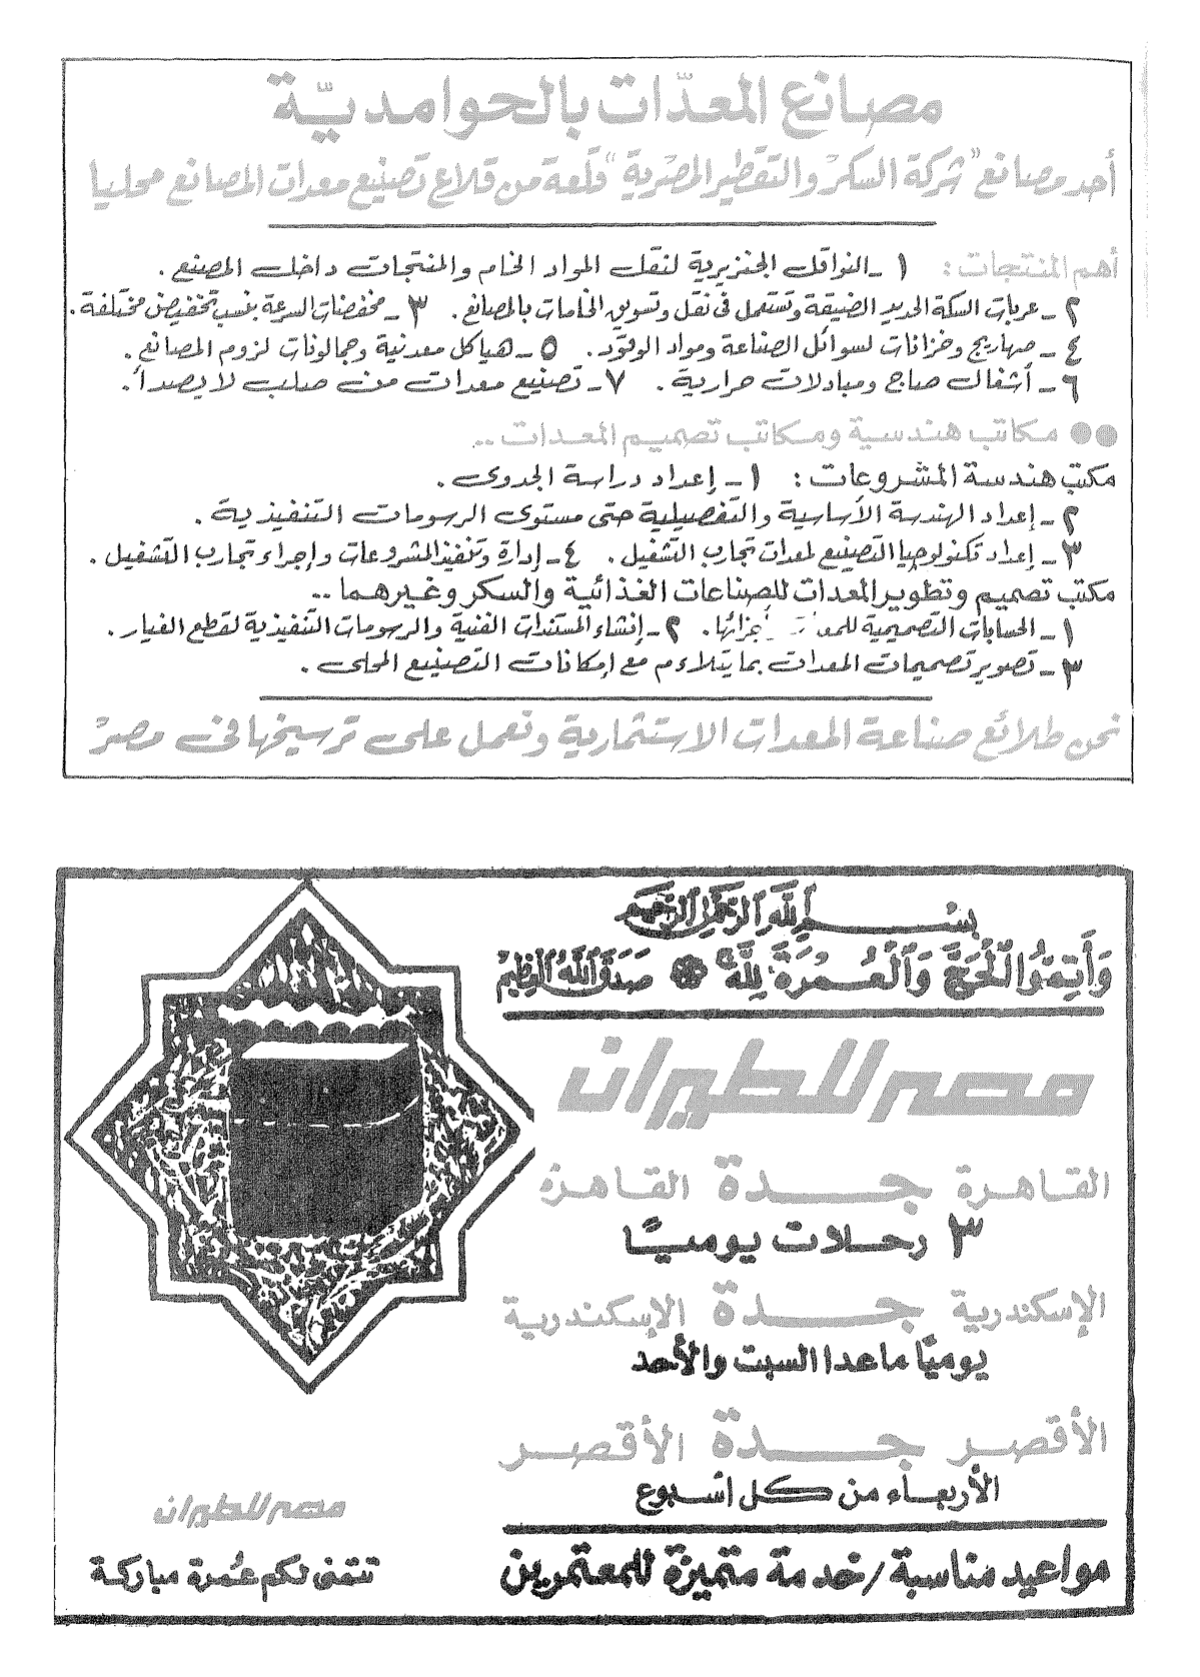 مصانع المعدّات بالحوامديّة
أحد مصانع "شركة السكر والتقطير المصرية" قلعة من قلاع تصنيع معدات المصانع محليا
أهم المنتجات: ١ ـ النواقل الجنزيرية لنقل المواد الخام والمنتجات داخل المصنع .
٢ ـ عربات السكة الحديد الضيقة وتستعمل فى نقل وتسويق الخامات بالمصانع . ٣ ـ مخفضات السرعة بنسب تخفيض مختلفة .
٤ ـ صهاريج وخزانات لسوائل الصناعة ومواد الوقود . ٥ ـ هياكل معدنية وجمالونات لزوم المصانع .
٦ ـ أشغال صاج ومبادلات حرارية . ٧ ـ تصنيع معدات من صلب لا يصدأ .
●● مكاتب هندسية ومكاتب تصميم المعدات ..
مكتب هندسة المشروعات : ١ ـ إعداد دراسة الجدوى .
٢ ـ إعداد الهندسة الأساسية والتفصيلية حتى مستوى الرسومات التنفيذية .
٣ ـ إعداد تكنولوجيا التصنيع لمعدات تجارب التشغيل . ٤ ـ إدارة وتنفيذ المشروعات وإجراء تجارب التشغيل .
مكتب تصميم وتطوير المعدات للصناعات الغذائية والسكر وغيرهما ..
١ ـ الحسابات التصميمية أجزائها . ٢ ـ إنشاء المستندات الفنية والرسومات التنفيذية لقطع الغيار .
٣ ـ تصوير تصميمات المعدات بما يتلاءم مع إمكانات التصنيع المحلى .
نحن طلائع صناعة المعدات الاستثمارية ونعمل على ترسيخها فى مصر
بِسْمِ اللَّهِ الرَّحْمَٰنِ الرَّحِيمِ
وَأَتِمُّوا الْحَجَّ وَالْعُمْرَةَ لِلَّهِ صَدَقَ اللَّهُ العَظِيمْ
مصر للطيران
القاهرة جدة القاهرة
٣ رحلات يوميًا
الإسكندرية جدة الإسكندرية
يوميًا ماعدا السبت والأحد
الأقصر جدة الأقصر
الأربعاء من كل أسبوع
مواعيد مناسبة / خدمة متميزة للمعتمرين
مصر للطيران
تتمنى لكم عُمرة مباركة